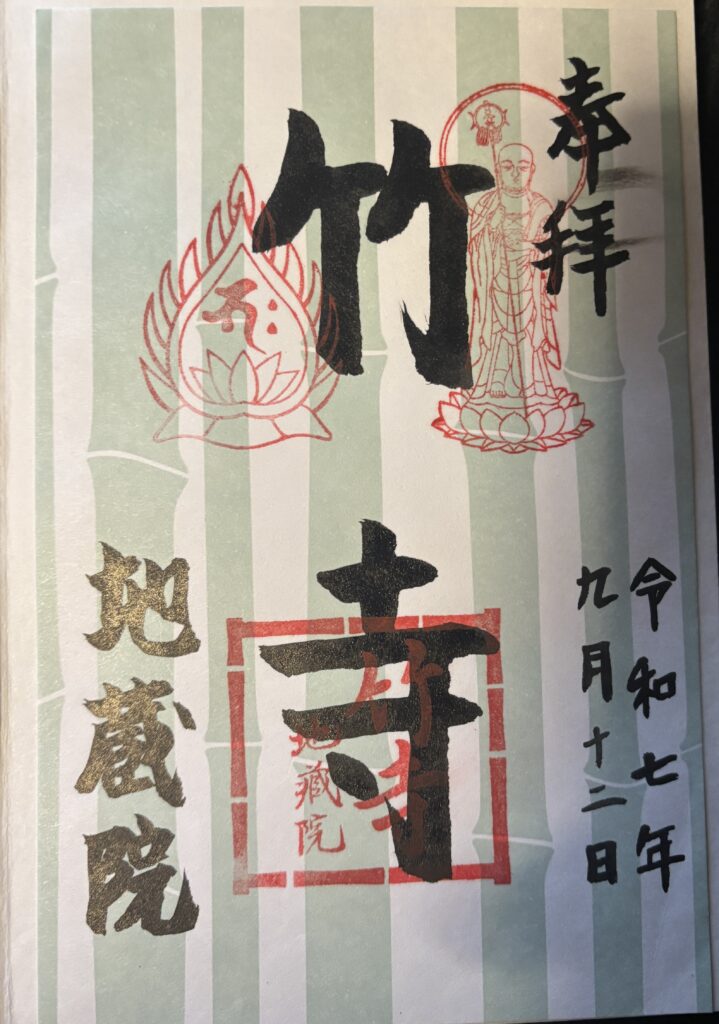 奉拝
令和七年
九月十二日
竹寺
竹寺
地蔵院
地蔵院